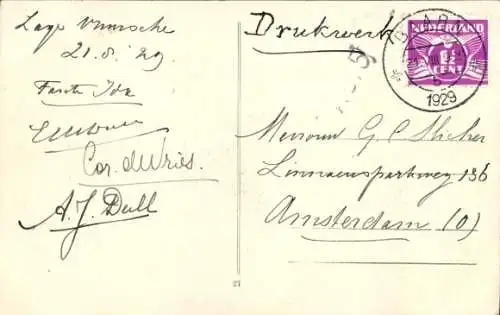 Lage Vuursche
21.8.29
Tante Ida
Cor. de Vries.
A. J. Dull
Drukwerk
NEDERLAND
CENT
BAARN
1929
Mevrouw G. C. Sticher
Linnaeusparkweg 136
Amsterdam (O)